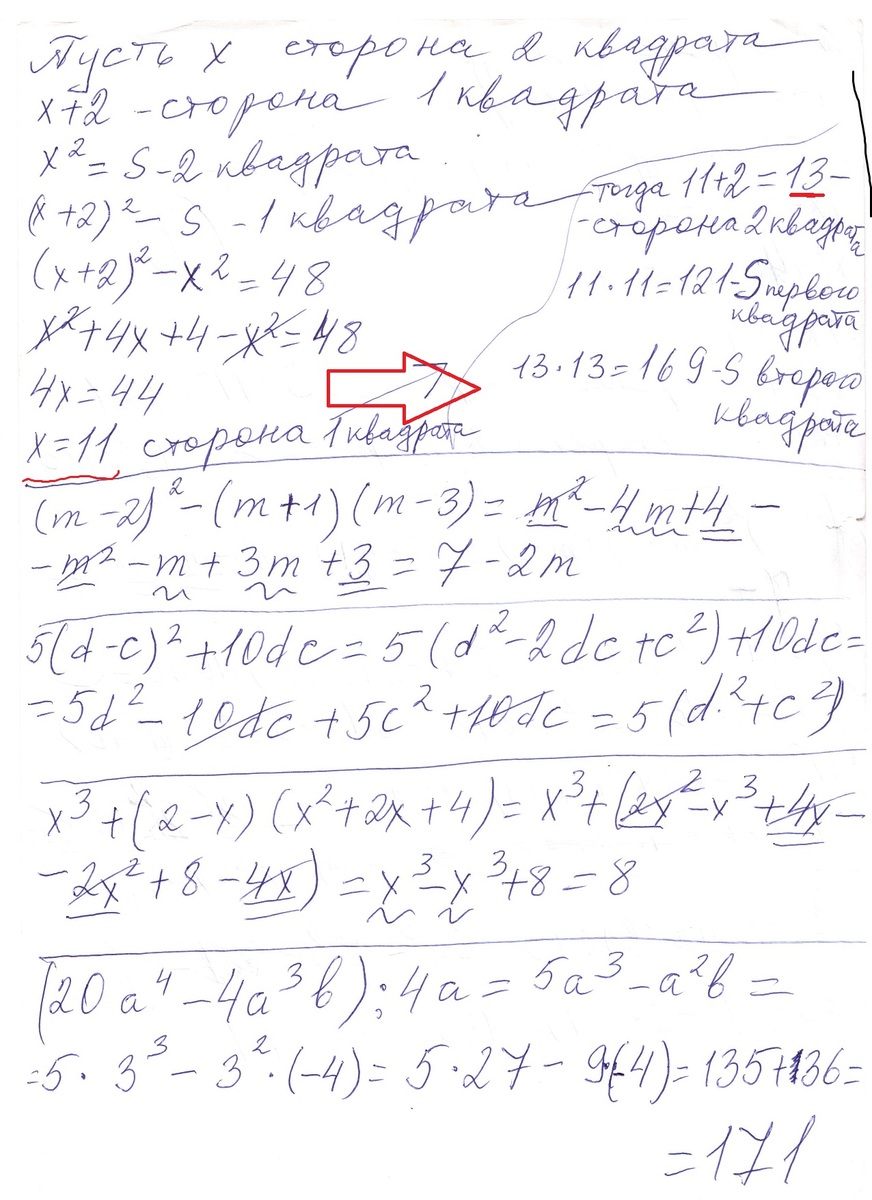 Пусть x сторона 2 квадрата
x+2 - сторона 1 квадрата
x² = S - 2 квадрата
(x+2)² - S - 1 квадрата
(x+2)² - x² = 48
x² + 4x + 4 - x² = 48
4x = 44
x = 11 сторона 1 квадрата
тогда 11+2 = 13 -
- сторона 2 квадрата
11·11 = 121 - S первого
квадрата
13·13 = 169 - S второго
квадрата
(m-2)² - (m+1)(m-3) = m² - 4m + 4 -
- m² - m + 3m + 3 = 7 - 2m
5(d-c)² + 10dc = 5(d² - 2dc + c²) + 10dc =
= 5d² - 10dc + 5c² + 10dc = 5(d² + c²)
x³ + (2-x)(x² + 2x + 4) = x³ + (2x² - x³ + 4x -
- 2x² + 8 - 4x) = x³ - x³ + 8 = 8
(20a⁴ - 4a³b) : 4a = 5a³ - a²b =
= 5·3³ - 3²·(-4) = 5·27 - 9·(-4) = 135 + 36 =
= 171